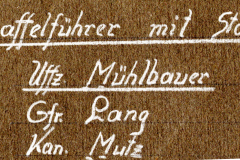 affelführer mit Sta
Uffz Mühlbauer
Gfr. Lang
Kan. Mutz